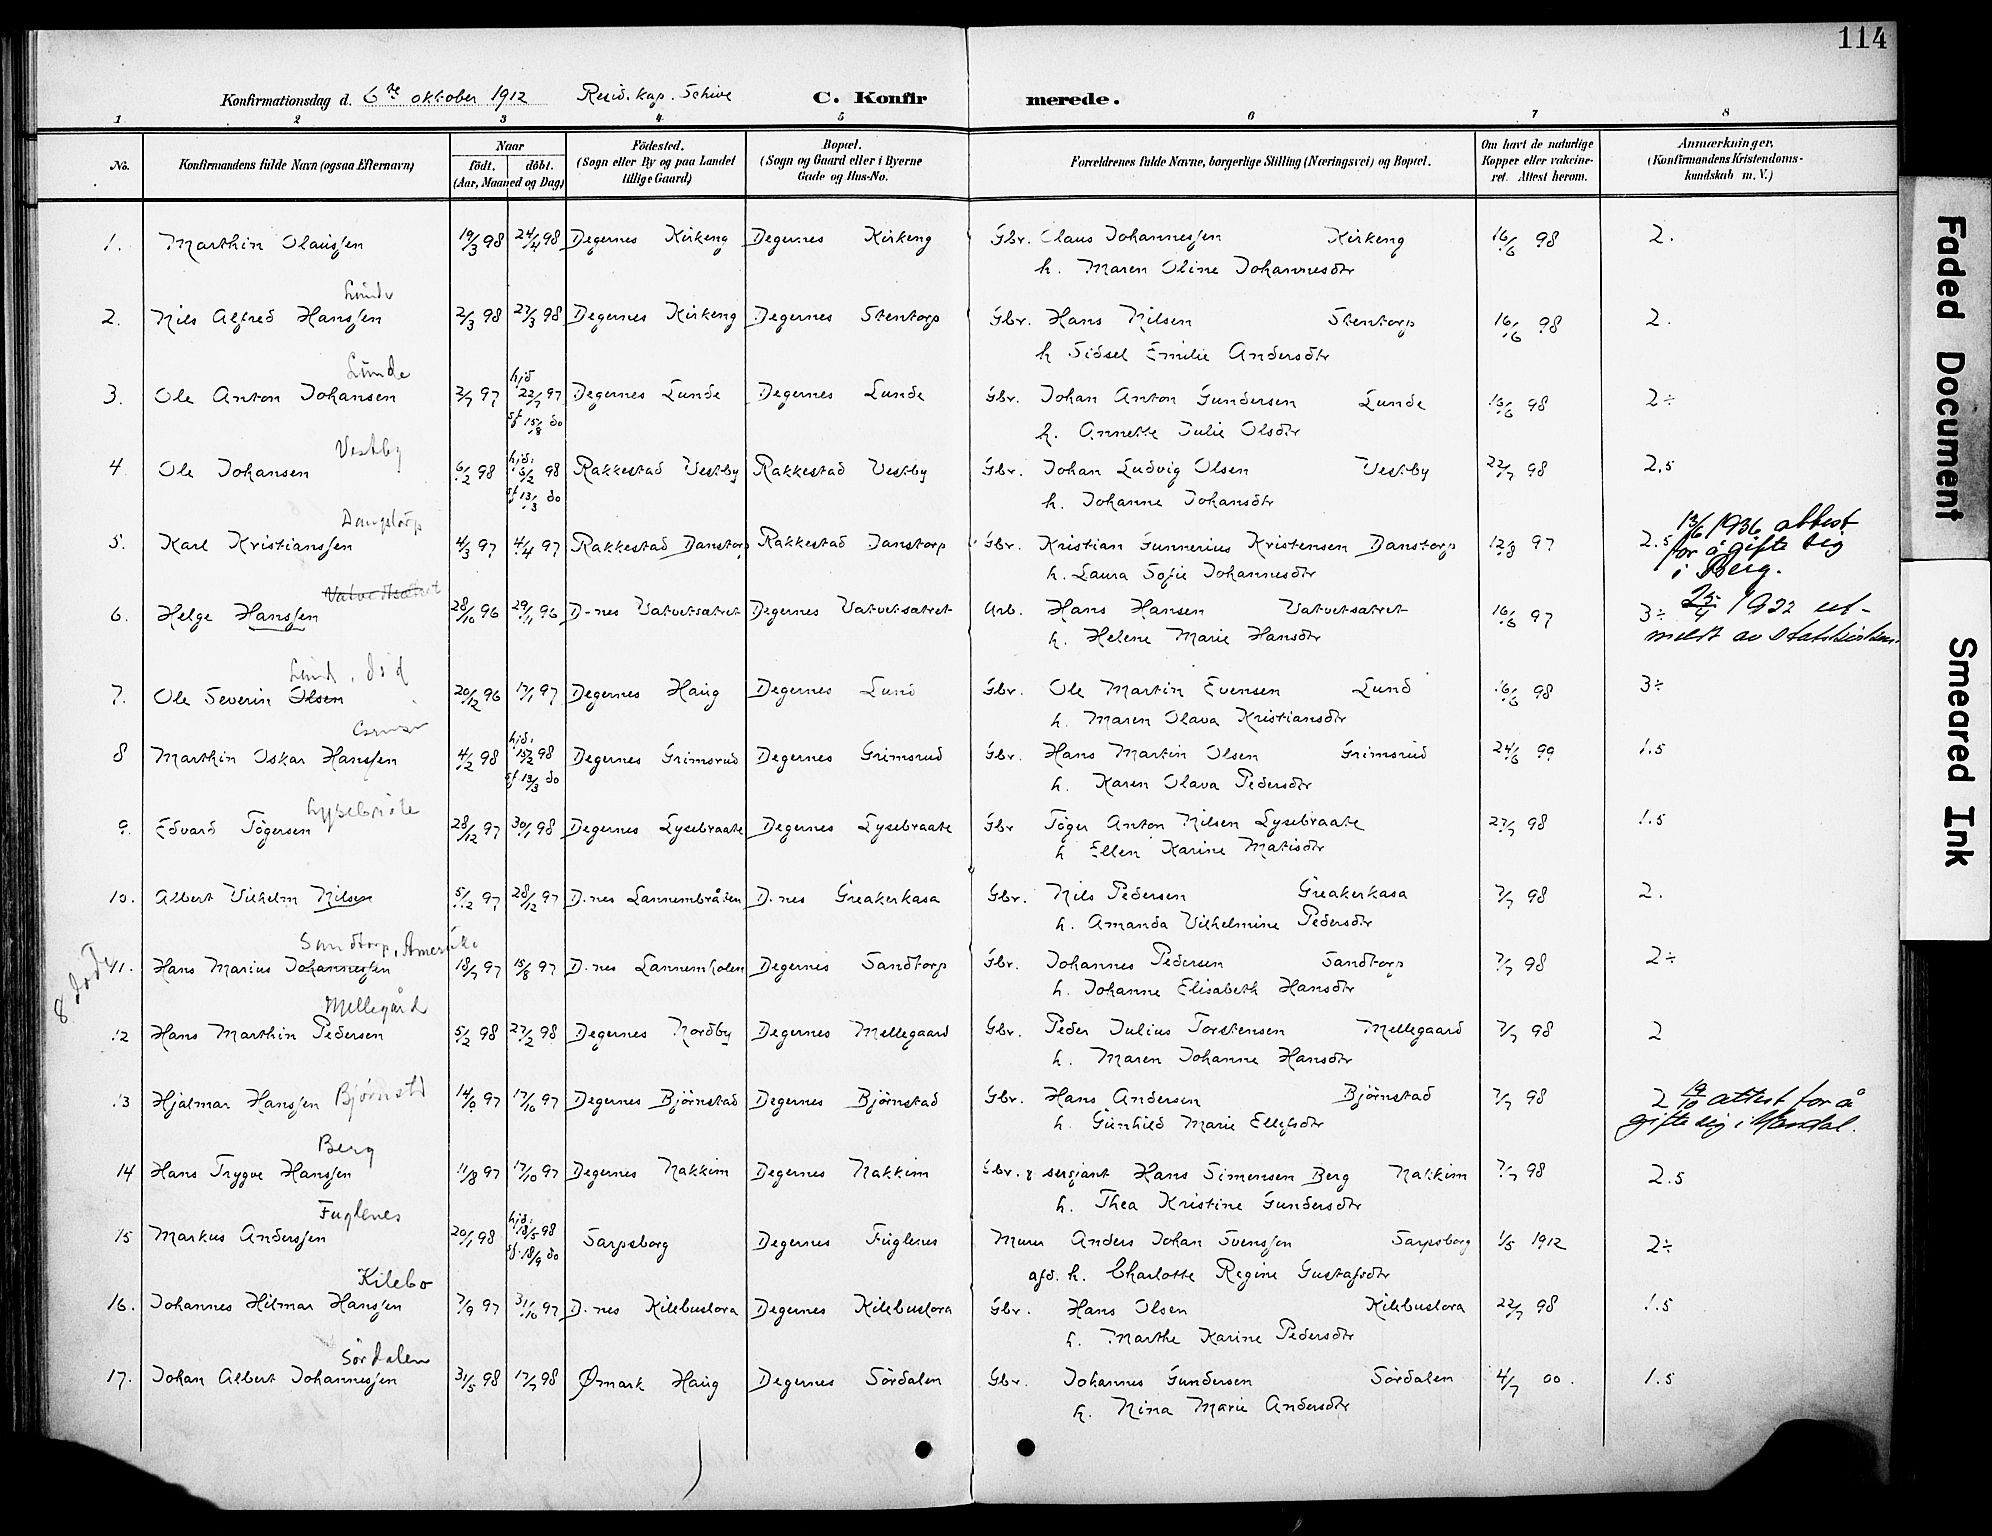 114
Konfirmationsdag d. 6te oktober 1912 Resid. kap. Schive C. Konfirmerede.
1 2 3 4 5 6 7 8
No. Konfirmandens fulde Navn (ogsaa Efternavn) Naar födt. döbt. (Aar, Maaned og Dag) Födested. (Sogn eller By og paa Landet tillige Gaard) Bopæl. (Sogn og Gaard eller i Byerne Gade og Hus-No. Forældrenes fulde Navne, borgerlige Stilling (Næringsvei) og Bopæl. Om havt de naturlige Kopper eller vakcineret. Attest herom. Anmærkninger, (Konfirmandens Kristendomskundskab m. V.)
1. Marthin Olaussen 19/3 98 24/4 98 Degernes Kirkeng Degernes Kirkeng Gbr. Olaus Johannessen Kirkeng 16/6 98 2.
h. Maren Oline Johannesdtr
Lunde
2. Nils Alfred Hanssen 2/3 98 27/3 98 Degernes Kirkeng Degernes Stentorp Gbr. Hans Nilsen Stentorp 16/6 98 2.
h Sidsel Emilie Andersdtr
Lunde
3. Ole Anton Johansen 2/7 97 hjd 22/7 97 Degernes Lunde Degernes Lunde Gbr. Johan Anton Gundersen Lunde 16/6 98 2÷
sf 15/8 do h. Annette Julie Olsdtr
Vestby
4. Ole Johansen 6/2 98 hjd. 6/2 98 Rakkestad Vestby Rakkestad Vestby Gbr. Johan Ludvig Olsen Vestby 22/7 98 2,5
sf 13/3 do h. Johanne Johansdtr
Danstorp
5. Karl Kristianssen 4/3 97 4/4 97 Rakkestad Danstorp Rakkestad Danstorp Gbr. Kristian Gunnerius Kristensen Danstorp 12/8 97 2.5 13/6 1936 attest for å gifte sig i Berg.
h. Laura Sofie Johannesdtr
Vatvedtsætret
6. Helge Hanssen 28/10 96 29/11 96 D-nes Vatvetsætret Degernes Vatvetsætret Arb. Hans Hansen Vatvetsætret 16/6 97 3÷ 25/4 1922 utmeldt av statskirken.
h. Helene Marie Hansdtr
Lund, död
7. Ole Severin Olsen 20/12 96 17/1 97 Degernes Haug Degernes Lund Gbr. Ole Martin Evensen Lund 16/6 98 3÷
h. Maren Olava Kristiansdtr
8 Marthin Oskar Hanssen 4/2 98 hjd. 15/2 98 Degernes Grimsrud Degernes Grimsrud Gbr. Hans Martin Olsen Grimsrud 24/6 99 1.5
sf 13/3 do h. Karen Olava Pedersdtr
Lysebråte
9. Edvard Tögersen 28/12 97 30/1 98 Degernes Lysebraate Degernes Lysebraate Gbr Töger Anton Nilsen Lysebraate 27/7 98 1.5
h Ellen Karine Matisdtr
10. Albert Vilhelm Nilsen 5/12 97 28/12 97 D.nes Lannembråten D.nes Greakerkasa Gbr. Nils Pedersen Greakerkasa 7/7 98 2.
h. Amanda Vilhelmine Pedersdtr
Sandtorp, Amerika
8. död 11. Hans Marius Johannessen 18/7 97 15/8 97 D.nes Lannemholen Degernes Sandtorp Gbr. Johannes Pedersen Sandtorp 7/7 98 2÷
h. Johanne Elisabeth Hansdtr
Mellegård
12 Hans Marthin Pedersen 5/2 98 27/2 98 Degernes Nordby Degernes Mellegaard Gbr. Peder Julius Torstensen Mellegaard 7/7 98 2
h. Maren Johanne Hansdtr
13 Hjalmar Hanssen Bjørnstd 14/9 97 17/10 97 Degernes Björnstad Degernes Björnstad Gbr. Hans Andersen Björnstad 7/7 98 2 19/10 attest for å gifte sig i Mandal.
h. Gunhild Marie Ellefsdtr
Berg
14 Hans Trygve Hanssen 11/8 97 17/10 97 Degernes Nakkim Degernes Nakkim Gbr. & sersjant Hans Simensen Berg Nakkim 7/7 98 2.5
h. Thea Kristine Gundersdtr
Fuglenes
15 Markus Anderssen 20/1 98 hjd. 18/5 98 Sarpsborg Degernes Fuglenes Murer Anders Johan Svenssen Sarpsborg 1/5 1912 2÷
sf. 18/9 do afd. h. Charlotte Regine Gustafsdtr
Kilebo
16. Johannes Hilmar Hanssen 7/9 97 31/10 97 D.nes Kilebuslora Degernes Kilebuslora Gbr. Hans Olsen Kilebuslora 22/7 98 1.5
h. Marthe Karine Pedersdtr
Sördalen
17. Johan Albert Johannessen 31/5 98 17/7 98 Ømark Haug Degernes Sördalen Gbr. Johannes Gundersen Sördalen 4/7 00. 1.5
h. Nina Marie Andersdtr
Faded Document
Smeared Ink